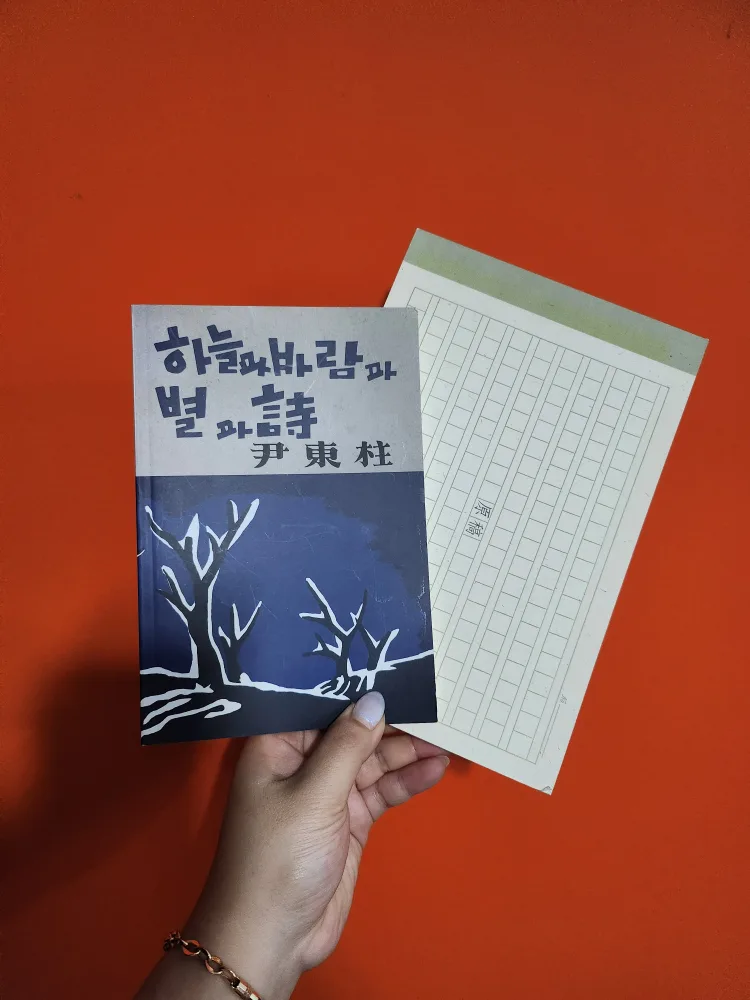 하늘과 바람과
별과 詩
尹東柱
原稿